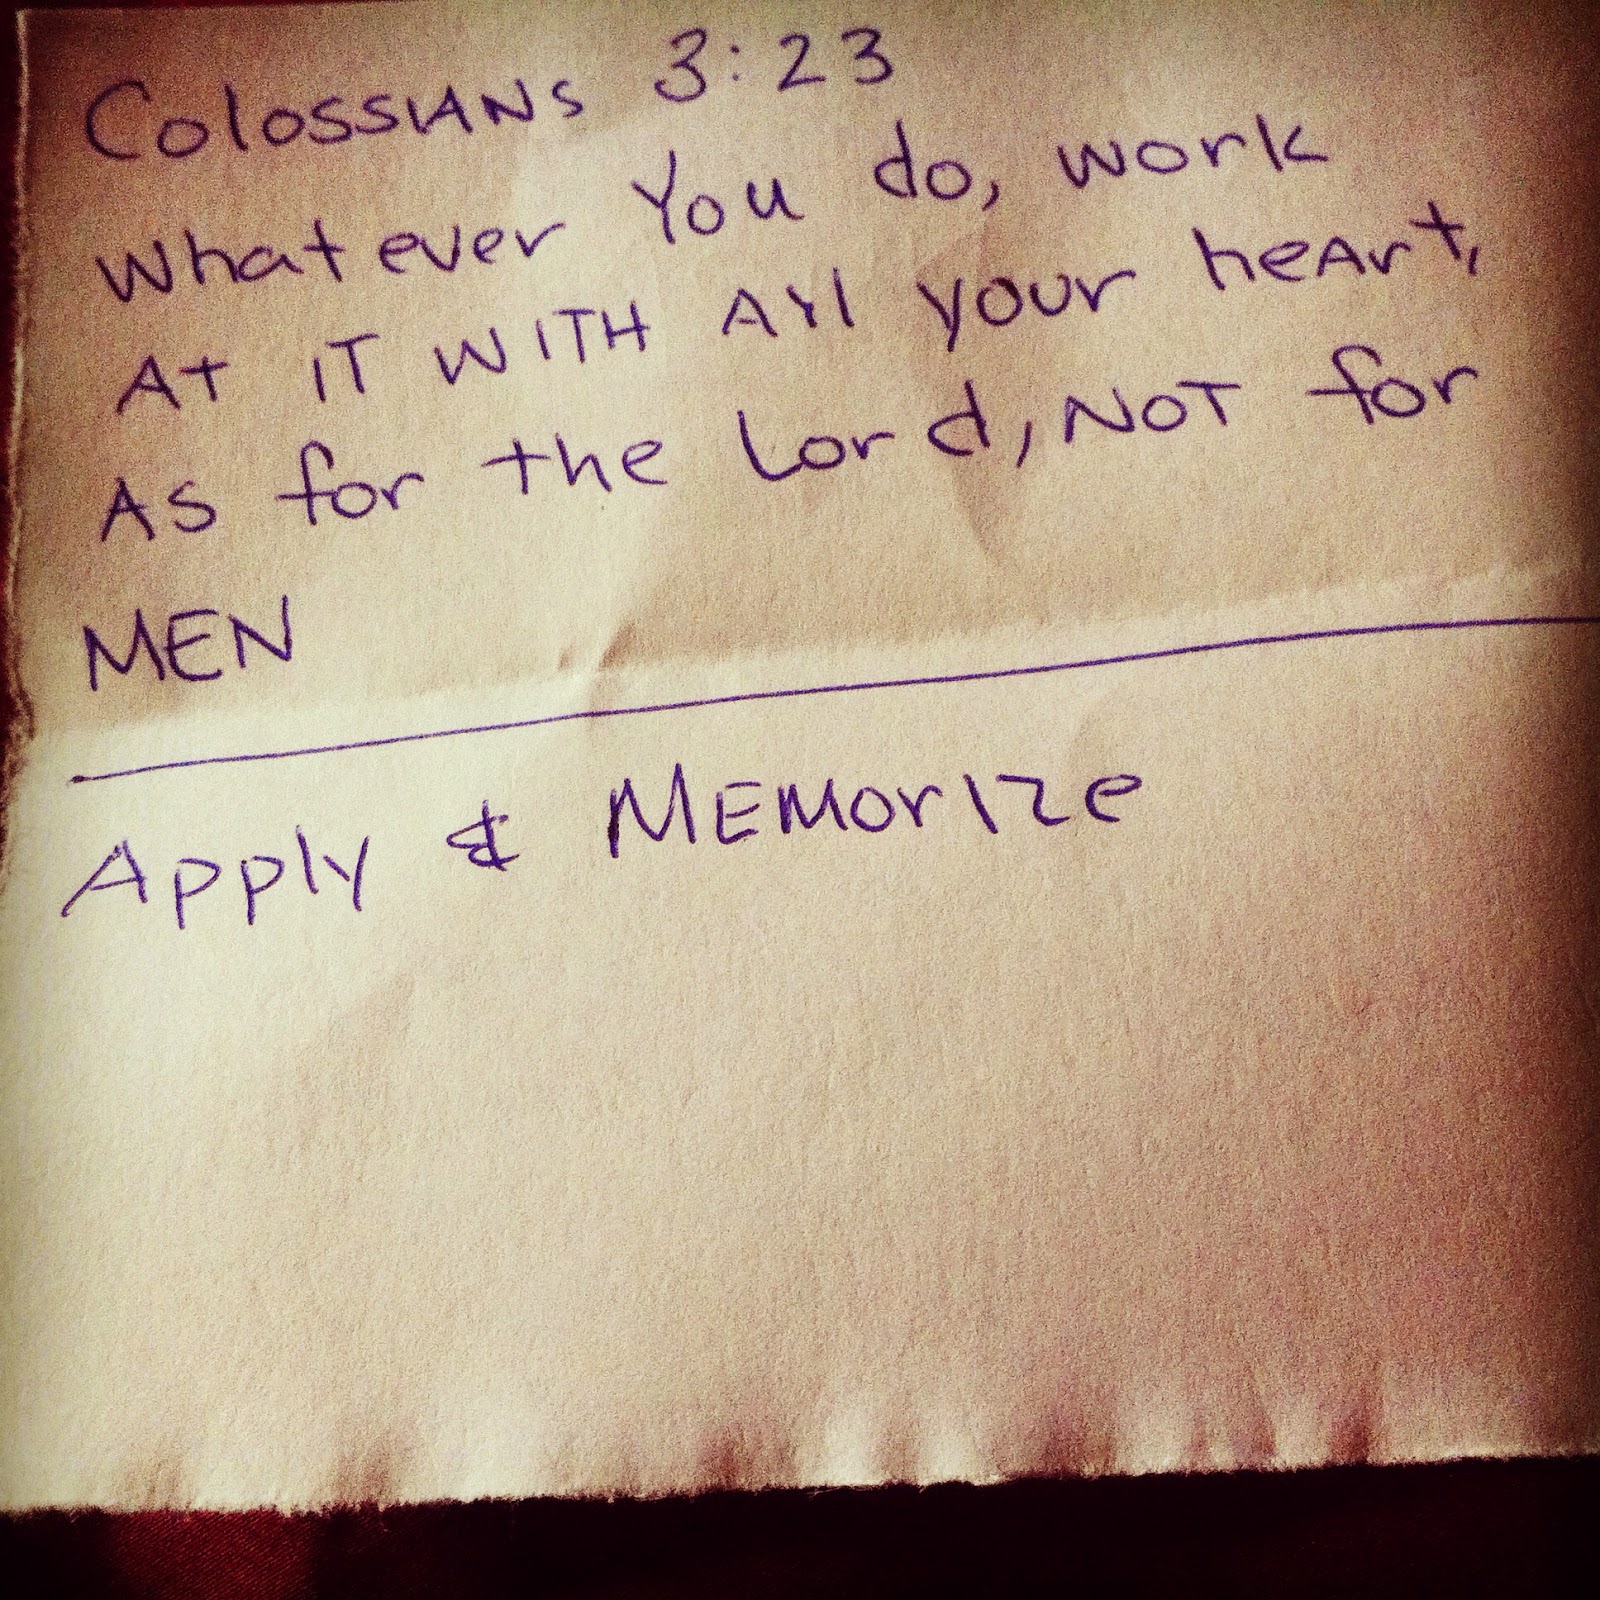 Colossians 3:23
Whatever You do, work
At IT WITH All your heart,
As for the Lord, NOT for
MEN
Apply & Memorize